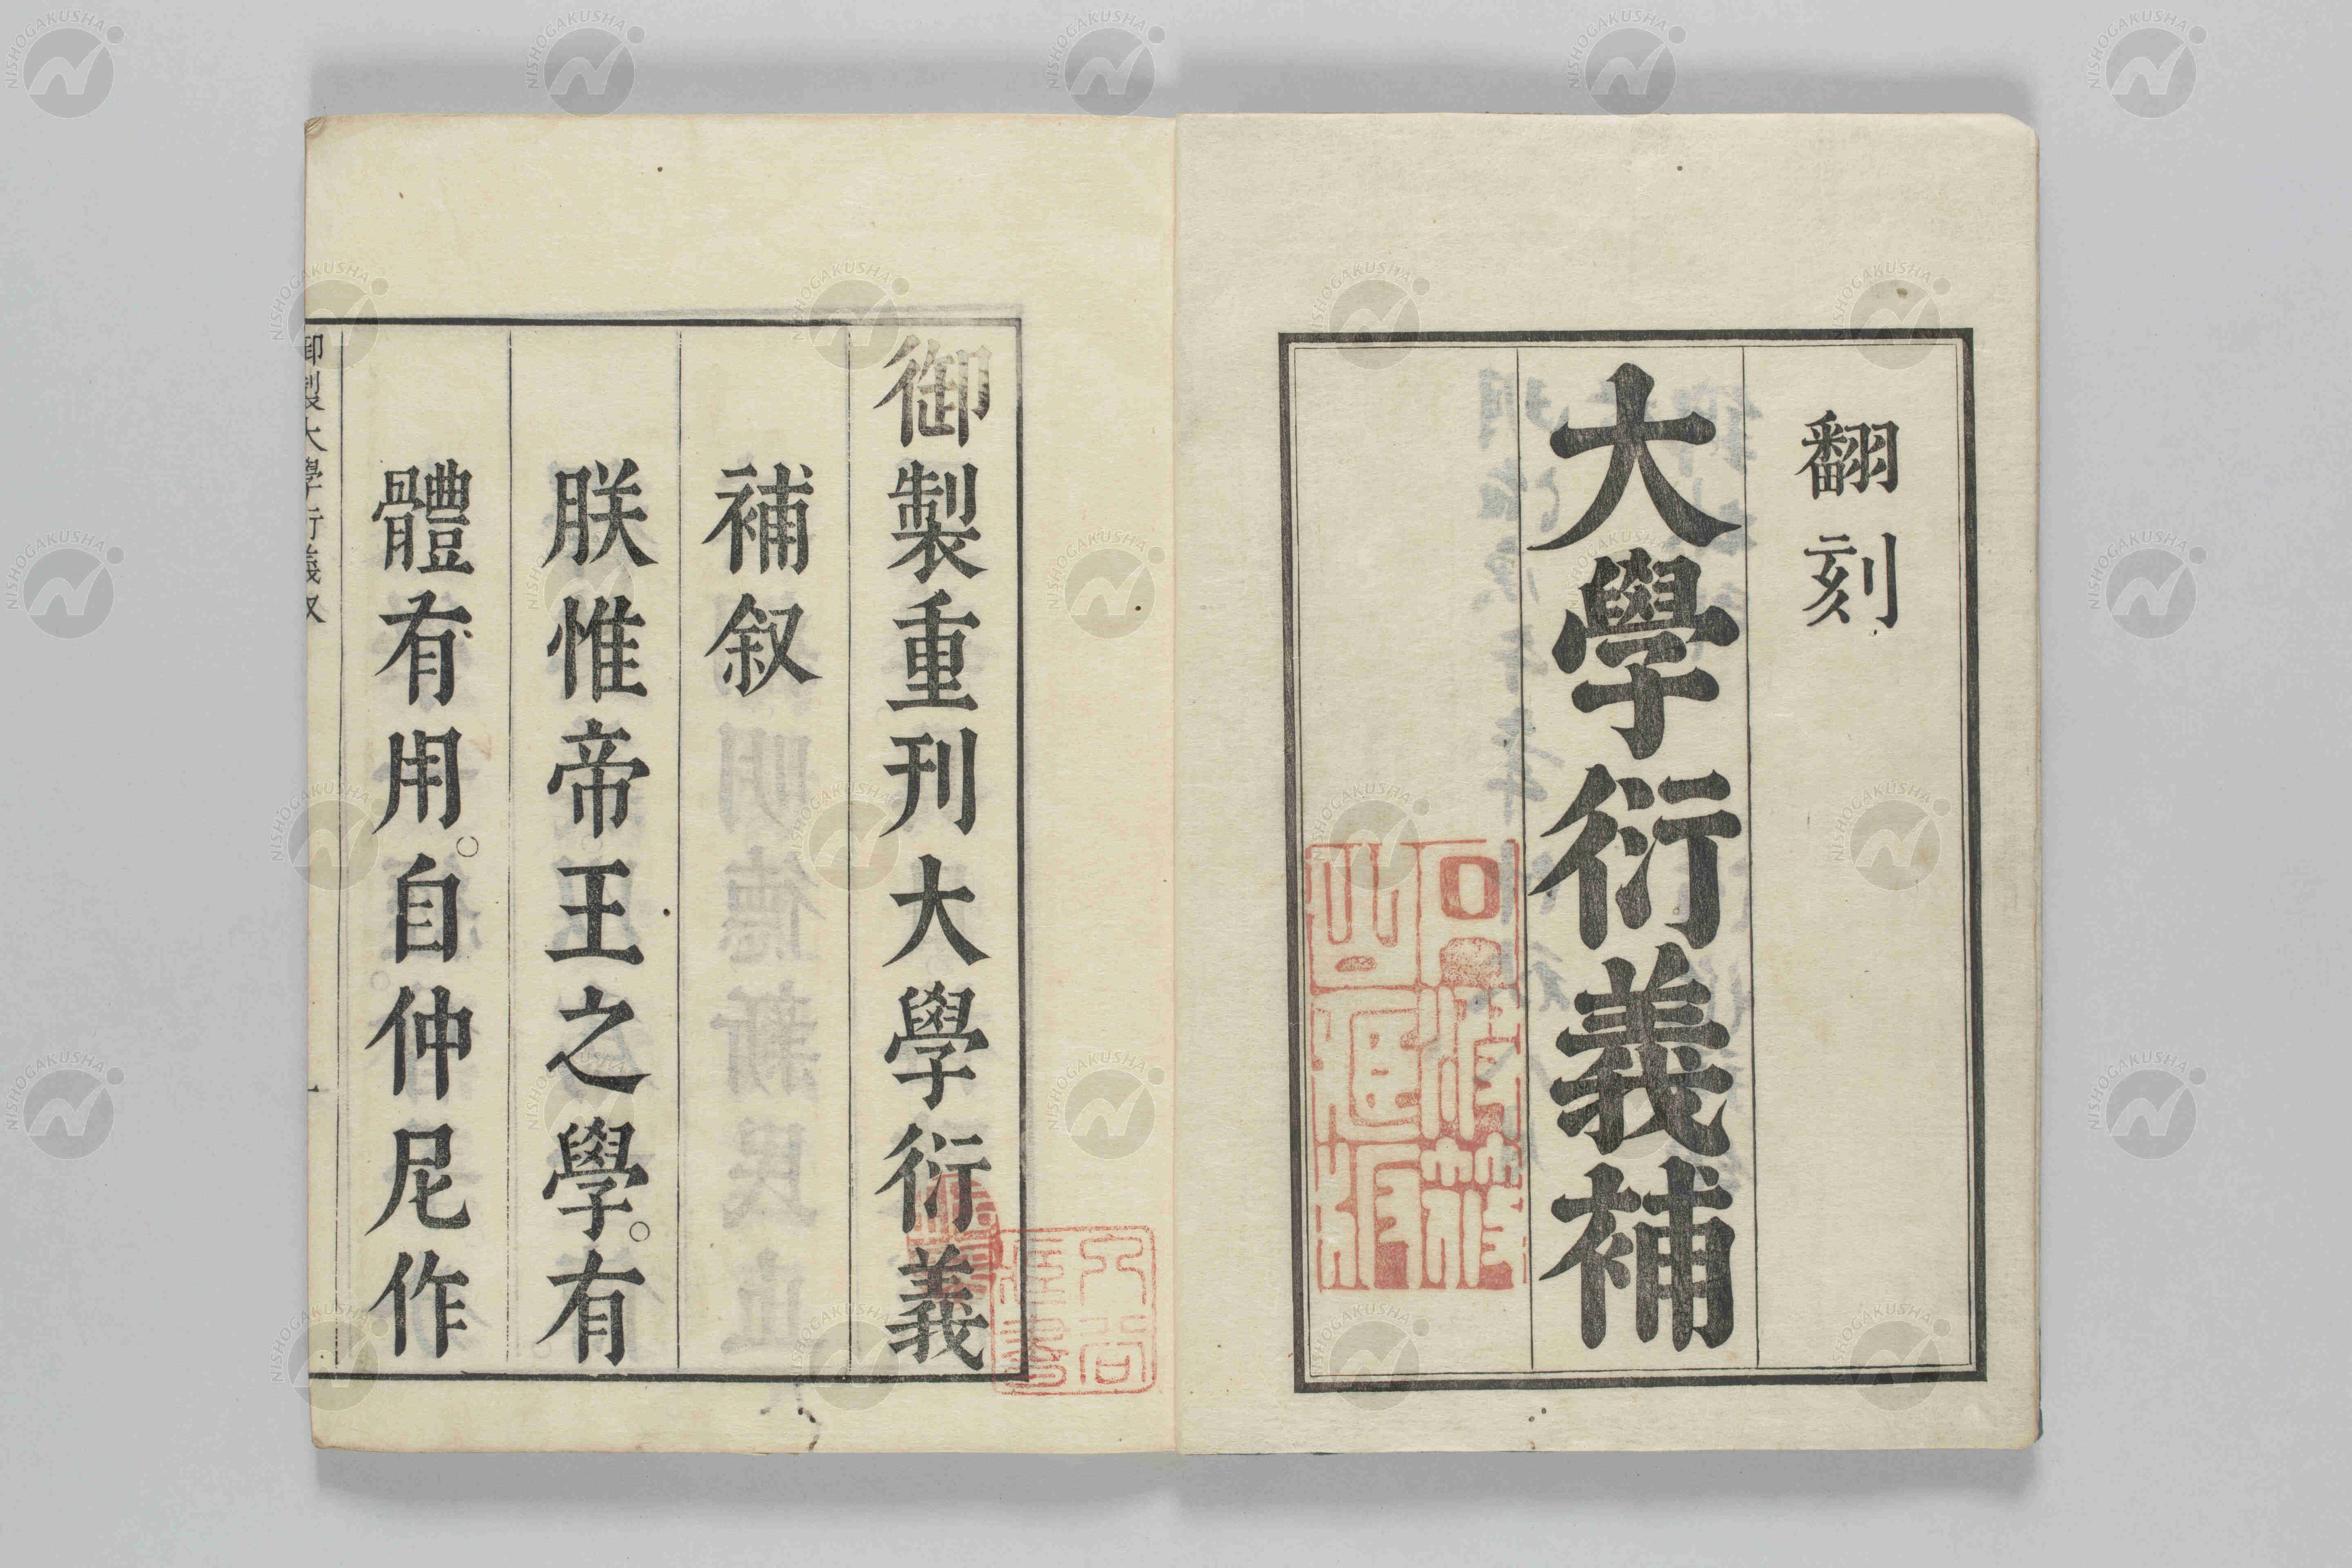 翻刻
大學衍義補
御製重刊大學衍義
補叙
朕惟帝王之學。有
體有用。自仲尼作
御製大學衍義叙
一
NISHOGAKUSHA